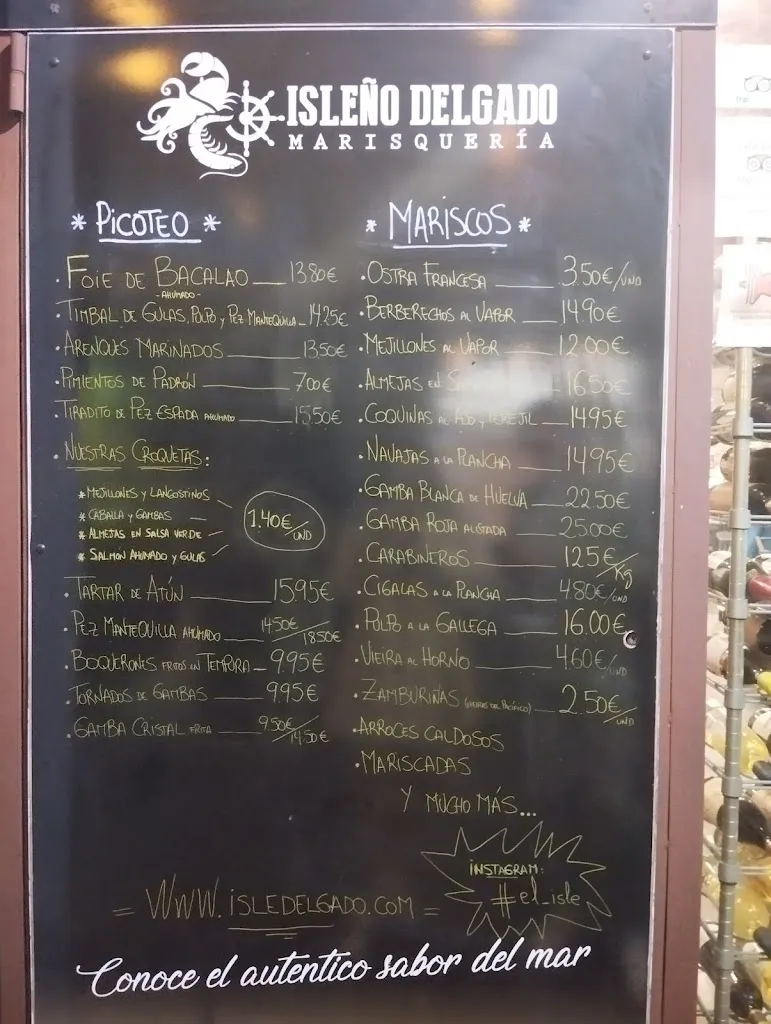 ISLEÑO DELGADO
MARISQUERÍA
* PICOTEO *
· FOIE DE BACALAO 13.80€
- AHUMADO -
· TIMBAL DE GULAS, PULPO Y PEZ MANTEQUILLA 14.25€
· ARENQUES MARINADOS 13.50€
· PIMIENTOS DE PADRÓN 7.00€
· TIRADITO DE PEZ ESPADA AHUMADO 15.50€
· NUESTRAS CROQUETAS:
* MEJILLONES Y LANGOSTINOS
* CABALLA Y GAMBAS
* ALMEJAS EN SALSA VERDE
* SALMÓN AHUMADO Y GULAS
1.40€/UND
· TARTAR DE ATÚN 15.95€
· PEZ MANTEQUILLA AHUMADO 14.50€/18.50€
· BOQUERONES FRITOS EN TEMPURA 9.95€
· TORNADOS DE GAMBAS 9.95€
· GAMBA CRISTAL FRITA 9.50€/14.50€
* MARISCOS *
· OSTRA FRANCESA 3.50€/UND
· BERBERECHOS AL VAPOR 14.90€
· MEJILLONES AL VAPOR 12.00€
· ALMEJAS EN 16.50€
· COQUINAS AL AJO Y PEREJIL 14.95€
· NAVAJAS A LA PLANCHA 14.95€
· GAMBA BLANCA DE HUELVA 22.50€
· GAMBA ROJA ALISTADA 25.00€
· CARABINEROS 125€/Kg
· CIGALAS A LA PLANCHA 4.80€/UND
· PULPO A LA GALLEGA 16.00€
· VIEIRA AL HORNO 4.60€/UND
· ZAMBURIÑAS 2.50€/UND
· ARROCES CALDOSOS
· MARISCADAS
Y MUCHO MÁS...
INSTAGRAM:
#el_isle
= WWW.ISLEDELGADO.COM =
Conoce el autentico sabor del mar